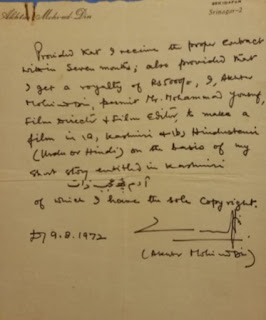 Akhtar Mohi-ud-Din
Srinagar-2
Provided that I receive the proper contract
within seven weeks; also provided that
I get a royalty of Rs 5000/-, I, Akhtar
Mohiuddin, permit Mr. Mohammad Yousuf,
Film Director & Film Editor, to make a
film in (a) Kashmiri & (b) Hindustani
(Urdu or Hindi) on the basis of my
short story entitled in Kashmiri
آدم ذات
of which I have the sole copyright.
9.8.1972
(Akhtar Mohiuddin)